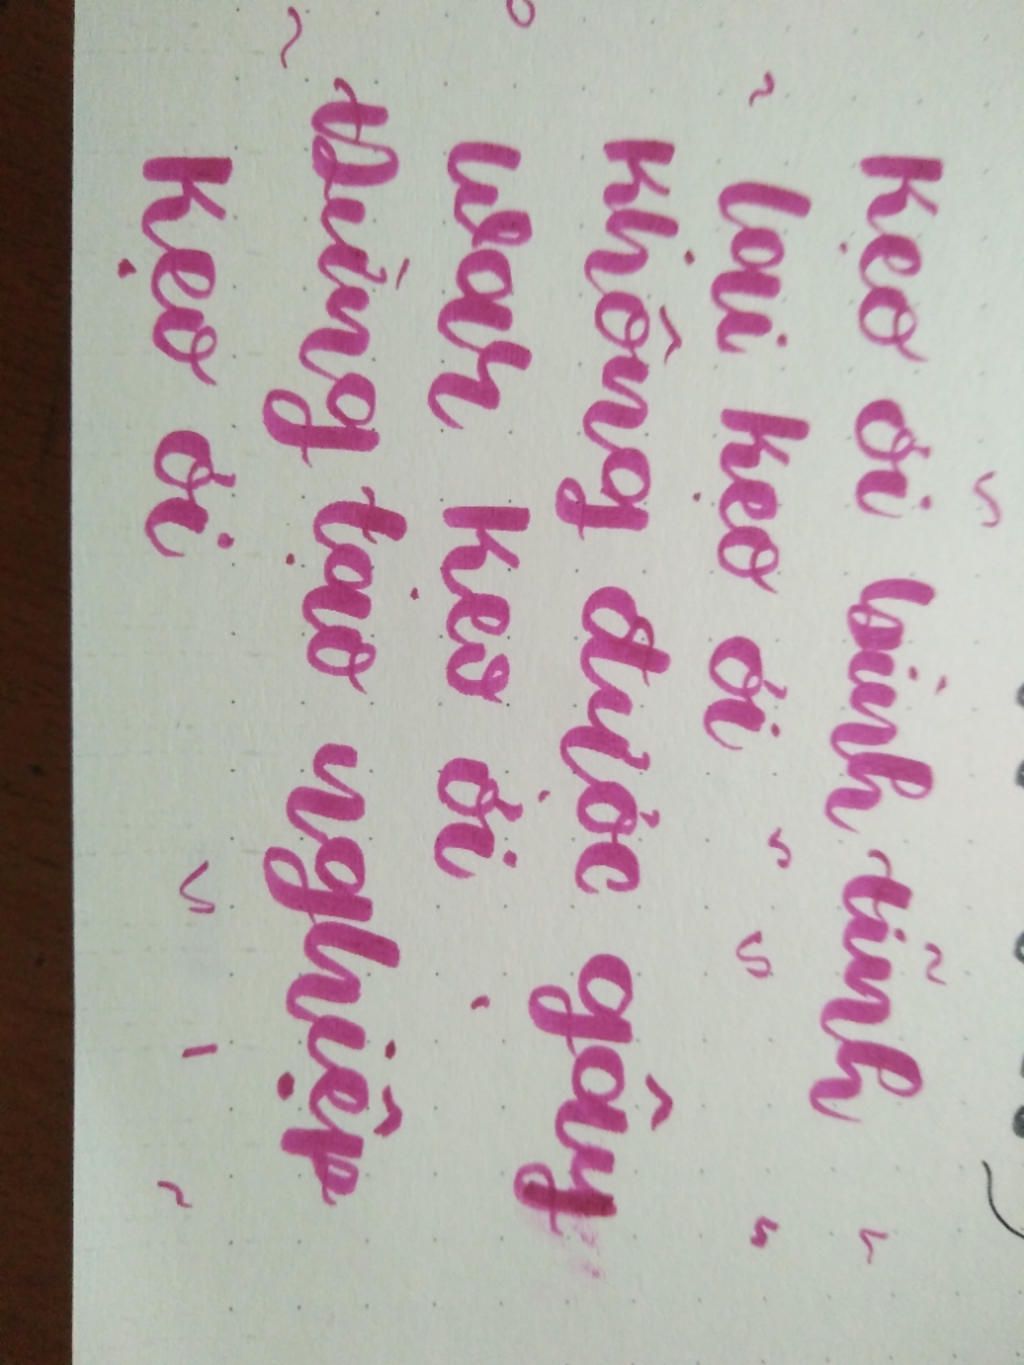 Kẹo ơi bình tĩnh
lại kẹo ơi
Không được gây
war kẹo ơi
Đừng tạo nghiệp
Kẹo ơi